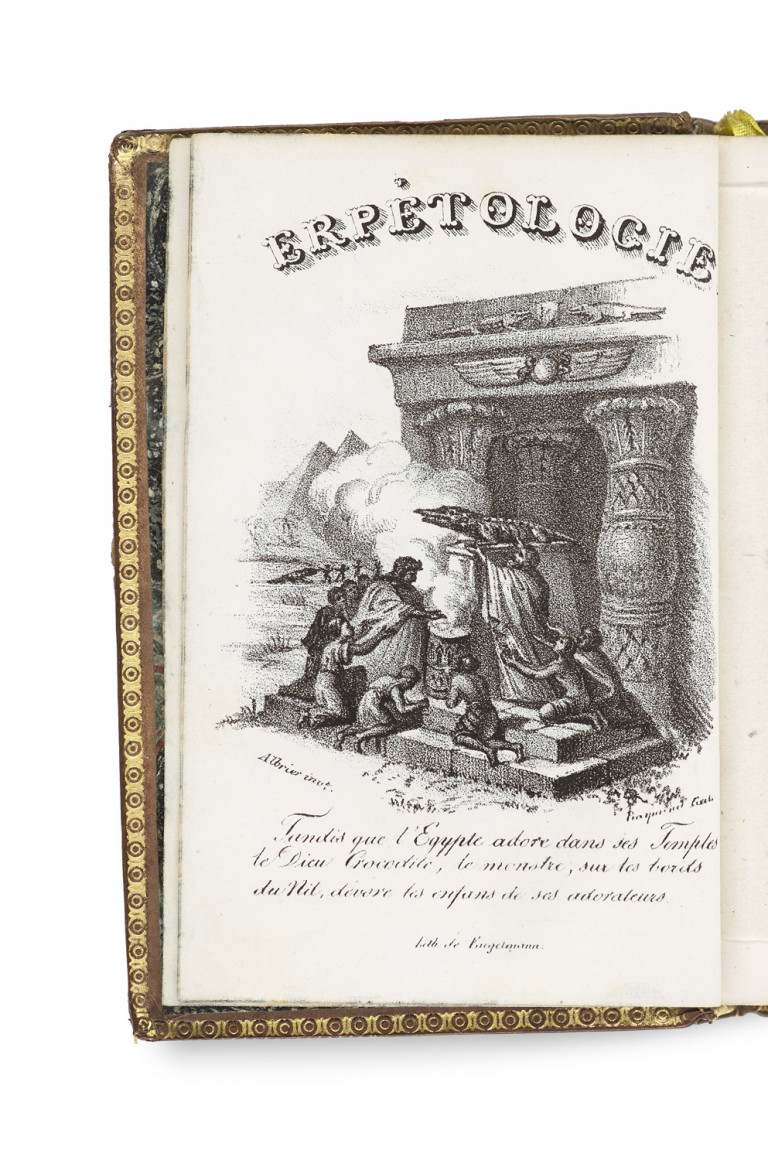 ERPÉTOLOGIE
Albrier invt.
Raymond
Tandis que l'Egypte adore dans ses Temples
le Dieu Crocodile, le monstre, sur les bords
du Nil, dévore les enfans de ses adorateurs.
Lith de Engelmann.